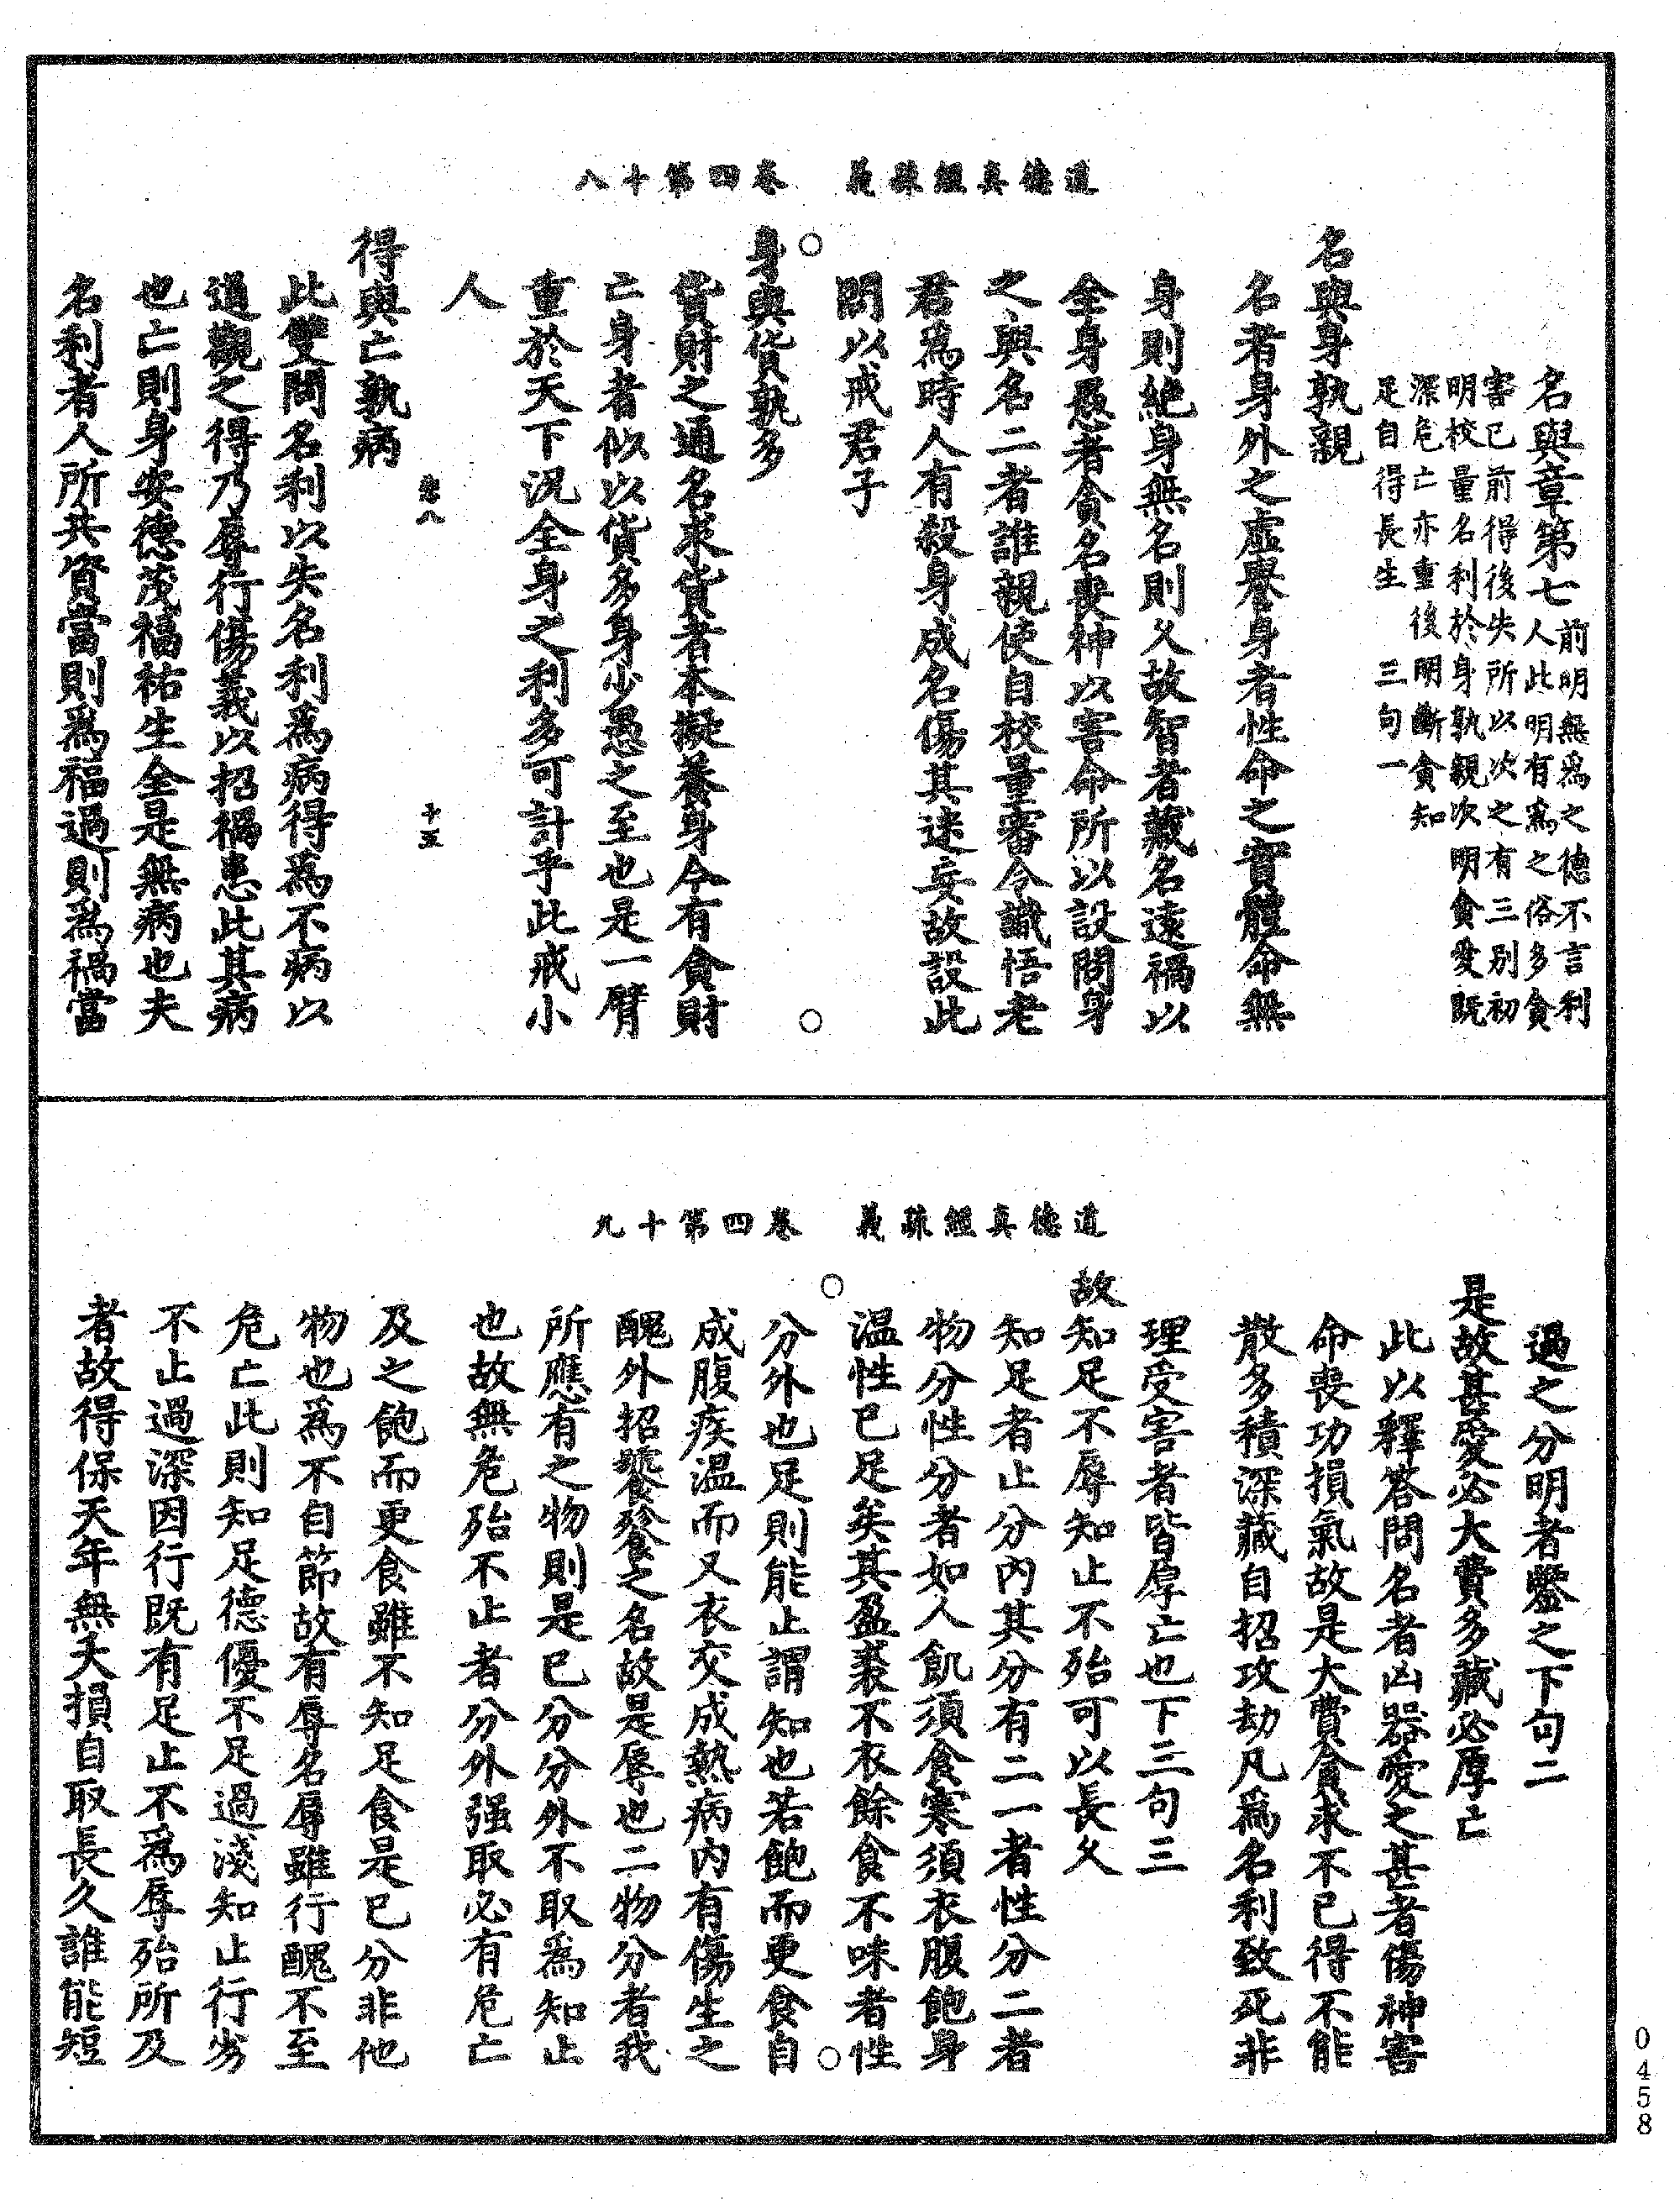 道德真經疏義　卷四第十八
名與章第七
前明無爲之德不言利
人此明有爲之俗多貪
害已前得後失所以次之有三別初
明校量名利於身孰親次明貪愛既
深危亡亦重後明斷貪知
足自得長生　三句一
名與身孰親
名者身外之虛譽身者性命之實體命無
身則絶身無名則久故智者藏名遠禍以
全身愚者貪名喪神以害命所以設問身
之與名二者誰親使自校量審令識悟老
君爲時人有殺身成名傷其迷妄故設此
問以戒君子
○　○
身與貨孰多
貨財之通名求貨者本擬養身今有貪財
亡身者似以貨多身少愚之至也是一臂
重於天下況全身之利多可計乎此戒小
人
悲八　十五
得與亡孰病
此雙問名利以失名利爲病得爲不病以
道觀之得乃辱行傷義以招禍患此其病
也亡則身安德茂福祐生全是無病也夫
名利者人所共資當則爲福過則爲禍當
道德真經疏義　卷四第十九
過之分明者鑒之下句二
是故甚愛必大費多藏必厚亡
此以釋答問名者凶器愛之甚者傷神害
命喪功損氣故是大費貪求不已得不能
散多積深藏自招攻劫凡爲名利致死非
理受害者皆厚亡也下三句三
故知足不辱知止不殆可以長久
知足者止分內其分有二一者性分二者
物分性分者如人飢須食寒須衣腹飽身
温性已足矣其盈裘不衣餘食不味者性
○　○
分外也足則能止謂知也若飽而更食自
成腹疾温而又衣交成熱病內有傷生之
醜外招饕餮之名故是辱也二物分者我
所應有之物則是已分分外不取爲知止
也故無危殆不止者分外强取必有危亡
及之飽而更食雖不知足食是已分非他
物也爲不自節故有辱名辱雖行醜不至
危亡此則知足德優不足過淺知止行劣
不止過深因行既有足止不爲辱殆所及
者故得保天年無夭損自取長久誰能短
0458